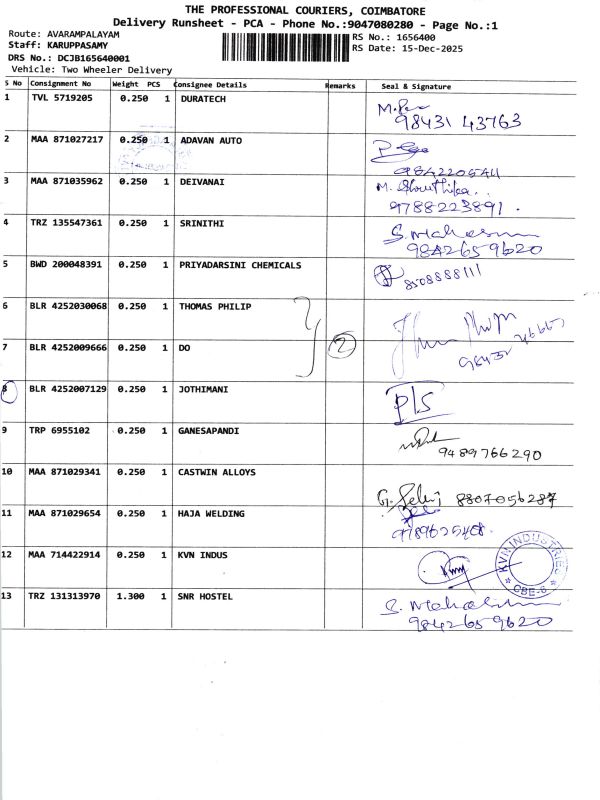 THE PROFESSIONAL COURIERS, COIMBATORE
Delivery Runsheet - PCA - Phone No.:9047080280 - Page No.:1
Route: AVARAMPALAYAM
Staff: KARUPPASAMY
DRS No.: DCJB165640001
Vehicle: Two Wheeler Delivery
RS No.: 1656400
RS Date: 15-Dec-2025
S No Consignment No Weight PCS Consignee Details Remarks Seal & Signature
1 TVL 5719205 0.250 1 DURATECH
98431 43763
2 MAA 871027217 0.250 1 ADAVAN AUTO
9842205411
3 MAA 871035962 0.250 1 DEIVANAI M. Shruthika..
9788223891.
4 TRZ 135547361 0.250 1 SRINITHI
9842659620
5 BWD 200048391 0.250 1 PRIYADARSINI CHEMICALS 8508888111
6 BLR 4252030068 0.250 1 THOMAS PHILIP
2
7 BLR 4252009666 0.250 1 DO
8 BLR 4252007129 0.250 1 JOTHIMANI
9 TRP 6955102 0.250 1 GANESAPANDI
9489766290
10 MAA 871029341 0.250 1 CASTWIN ALLOYS
8807056287
11 MAA 871029654 0.250 1 HAJA WELDING
9789625408.
12 MAA 714422914 0.250 1 KVN INDUS
KVN INDUSTRIES CBE-6
13 TRZ 131313970 1.300 1 SNR HOSTEL
9842659620